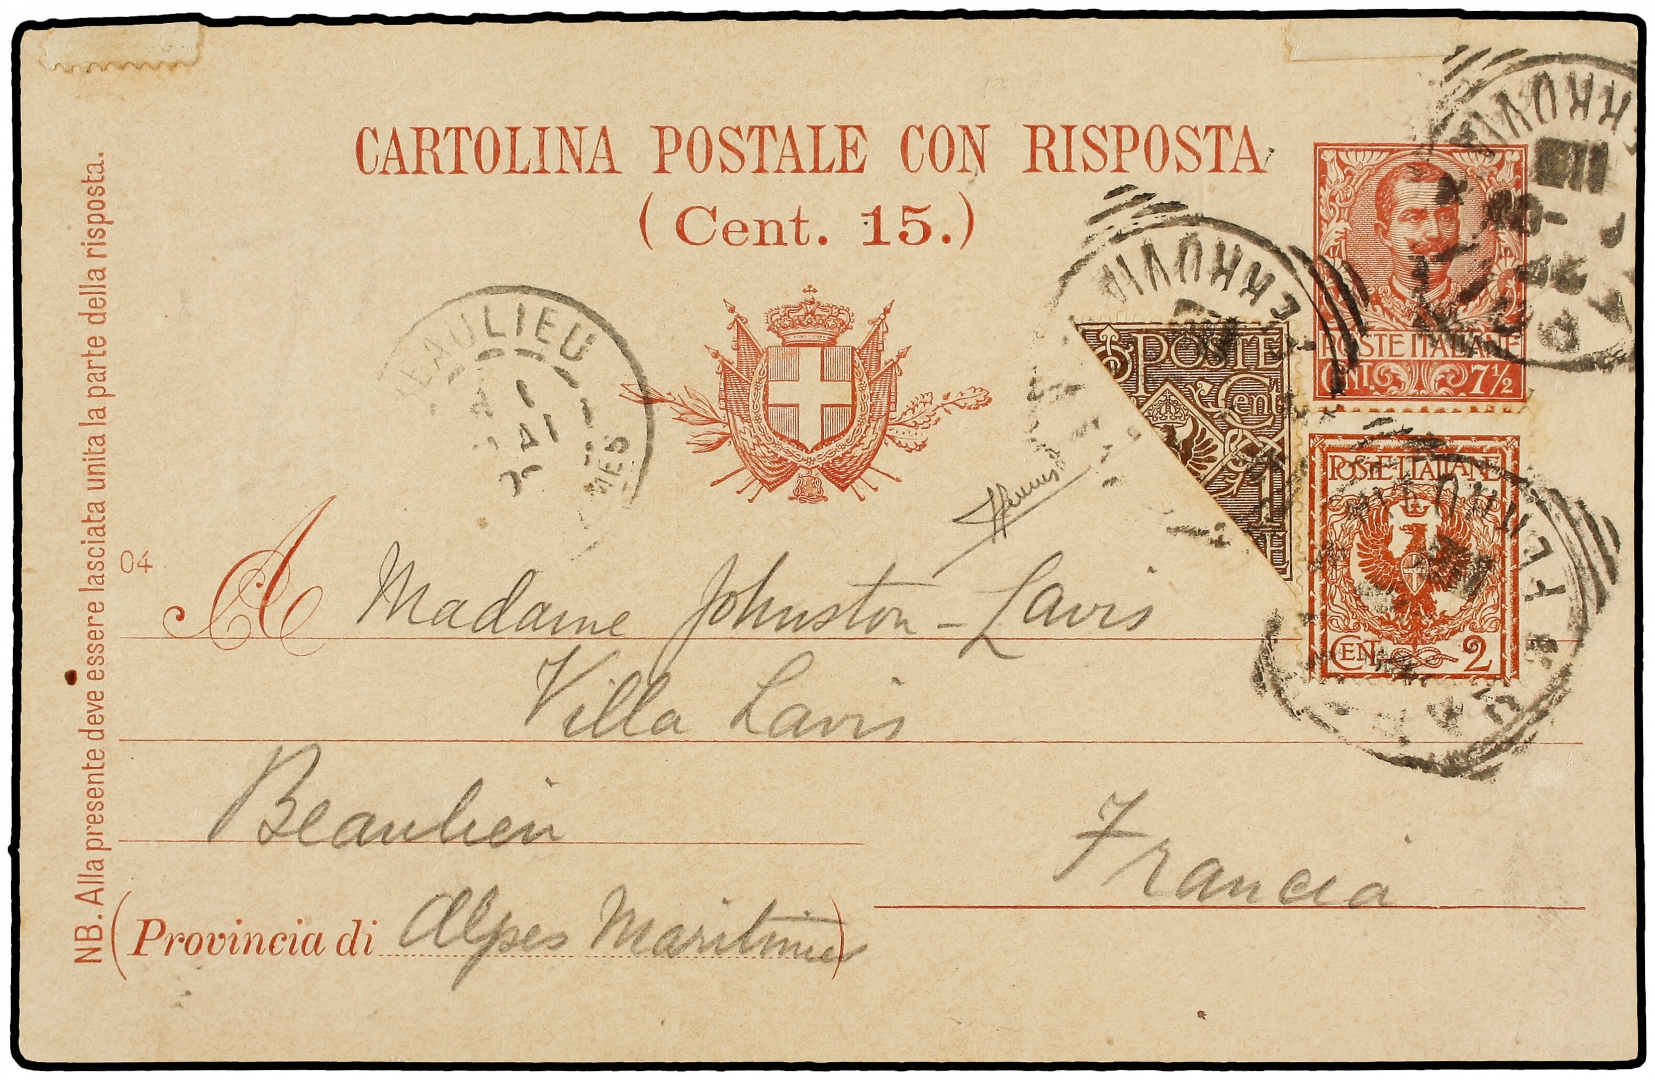 CARTOLINA POSTALE CON RISPOSTA
(Cent. 15.)
NB. Alla presente deve essere lasciata unita la parte della risposta.
POSTE ITALIANE
CENT. 7½
BEAULIEU
FERROVIA
POSTE
Cen
POSTE ITALIANE
CEN. 2
04
A Madame Johnston-Lavis
Villa Lavis
Beaulieu
Francia
(Provincia di Alpes Maritimes)